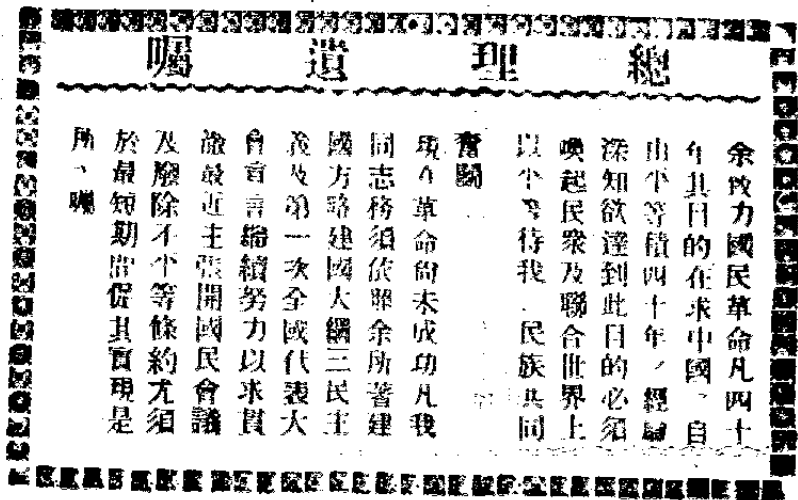 總理遺囑
余致力國民革命凡四十
年其目的在求中國之自
由平等積四十年之經驗
深知欲達到此目的必須
喚起民衆及聯合世界上
以平等待我民族共同
奮鬭
現在革命尚未成功凡我
同志務須依照余所著建
國方略建國大綱三民主
義及第一次全國代表大
會宣言繼續努力以求貫
徹最近主張開國民會議
及廢除不平等條約尤須
於最短期間促其實現是
所囑